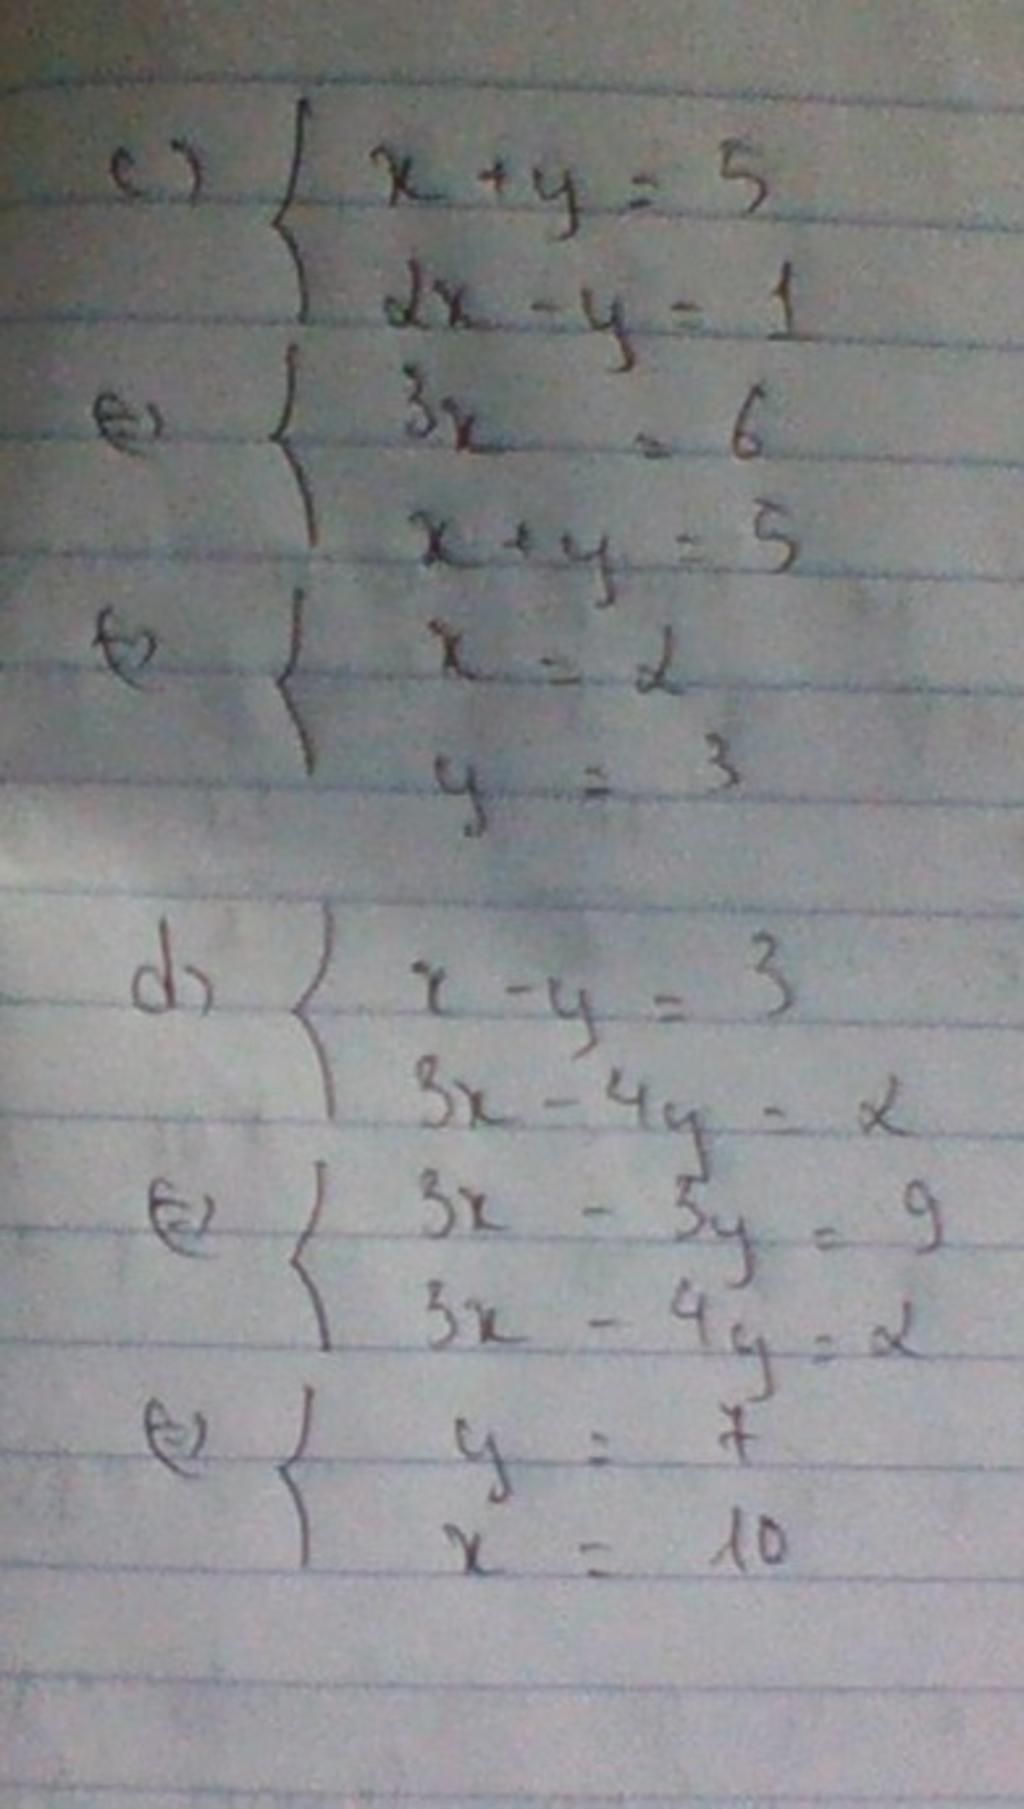 c) { x + y = 5
2x - y = 1
(=) { 3x = 6
x + y = 5
(=) { x = 2
y = 3
d) { x - y = 3
3x - 4y = 2
(=) { 3x - 3y = 9
3x - 4y = 2
(=) { y = 7
x = 10